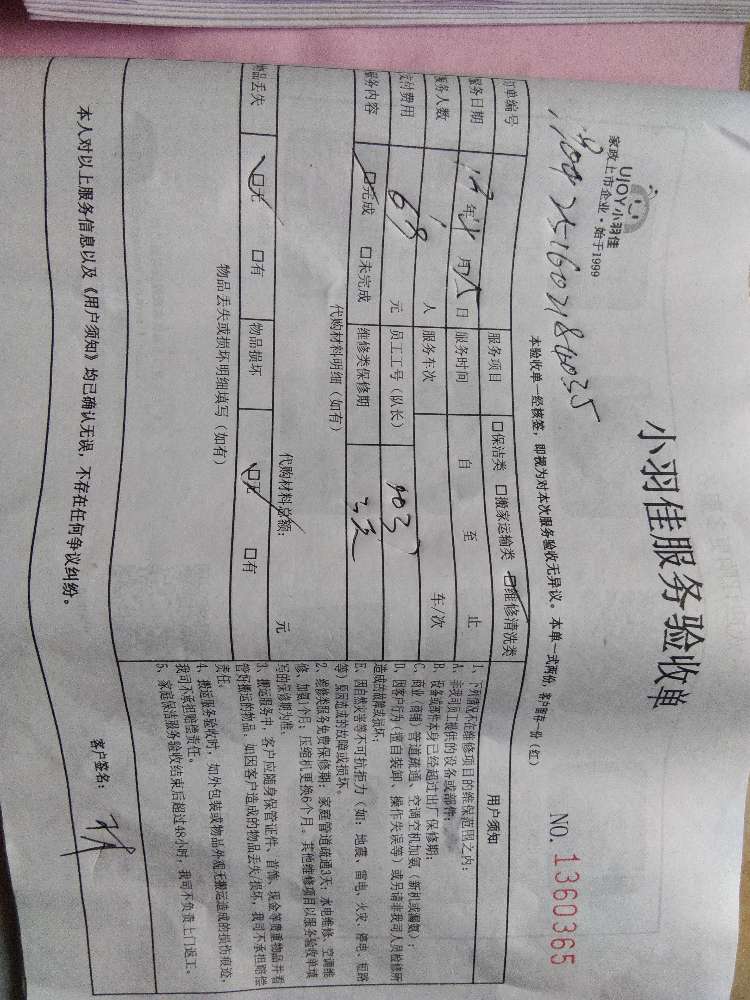 UJOY小羽佳
家政上市企业·始于1999
小羽佳服务验收单
NO. 1360365
本验收单一经核签，即视为对本次服务验收无异议。本单一式两份，客户留存一份（红）
订单编号
服务项目 口保洁类 口搬家运输类 口维修清洗类
服务日期 年 月 日 服务时间 自 至 止
服务人数 1 人 服务车次 车/次
支付费用 68 元 员工工号（队长）
服务内容 口完成 口未完成 维修类保修期 3天
代购材料明细（如有）
代购材料总额： 元
物品丢失 口无 口有 物品损坏 口无 口有
物品丢失或损坏明细填写（如有）
用户须知
1、下列情况不在维修项目的维保范围之内：
A、非我司员工提供的设备或部件；
B、设备或部件本身已经超过出厂保修期；
C、商业（商铺）管道疏通、空调空机加氨（新机或漏氨）；
D、因客户行为（擅自装卸、操作失误等）或另请非我司人员检修所
造成的故障或损坏；
E、因自然灾害等不可抗拒力（如：地震、雷电、火灾、停电、短路
等）原因造成的故障或损坏。
2、维修类服务免费保修期：家庭管道疏通3天，水电维修、空调维
修、加氨1个月，压缩机更换6个月。其他维修项目以服务验收单填
写的保修期为准。
3、搬运服务中，客户应随身保管证件、首饰、现金等贵重物品并看
管好搬运的物品，如因客户造成的物品丢失/损坏，我司不承担赔偿
责任。
4、搬运服务验收时，如外包装或物品外观无搬运造成的损伤痕迹，
我司不承担赔偿责任。
5、家庭保洁服务验收结束后超过48小时，我司不负责上门返工。
本人对以上服务信息以及《用户须知》均已确认无误，不存在任何争议纠纷。
客户签名：